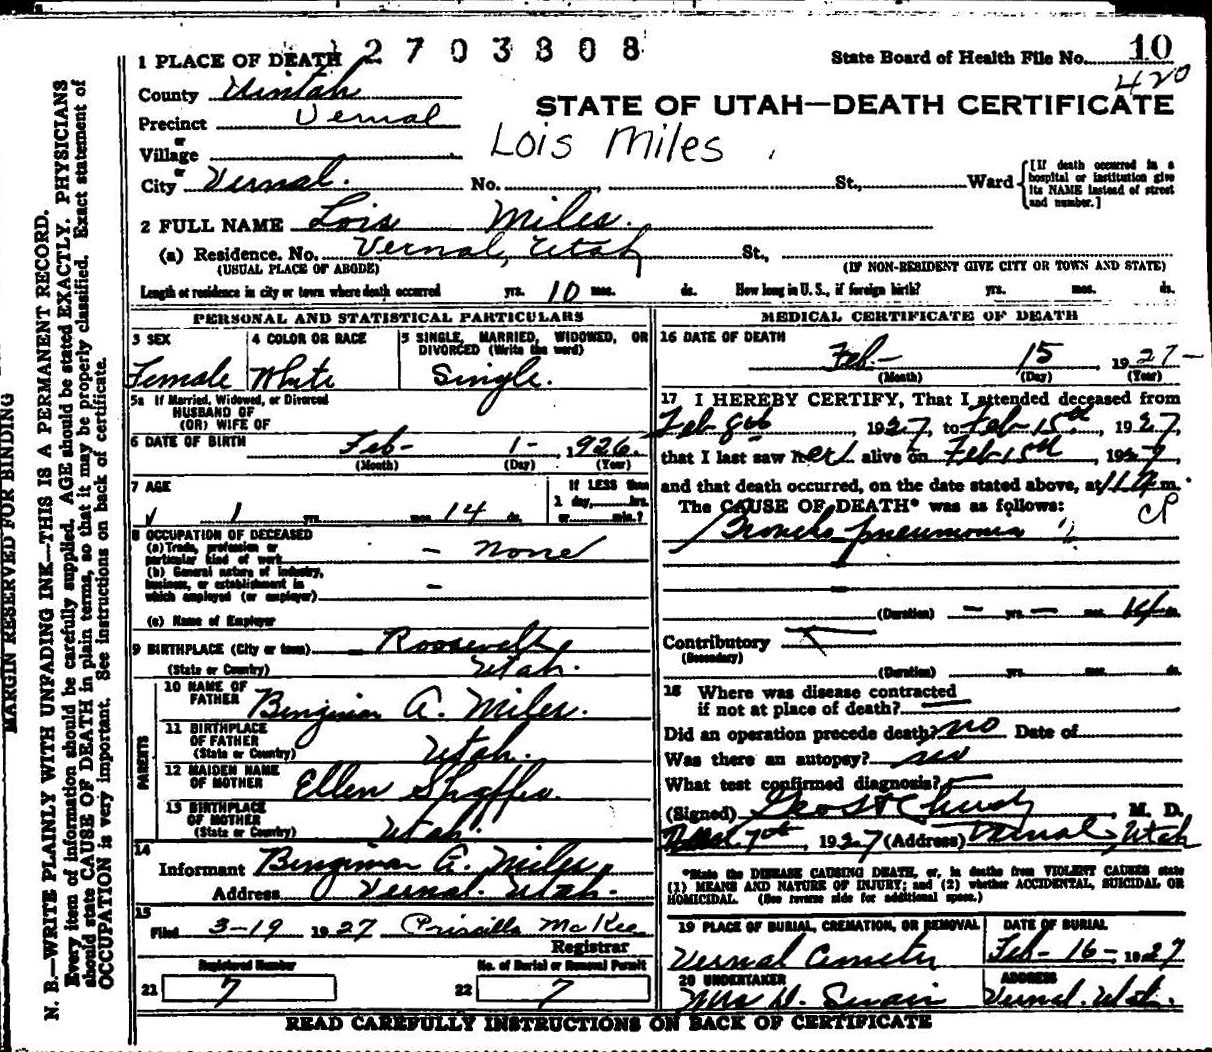 2703808
State Board of Health File No. 10
420
1 PLACE OF DEATH
County Uintah
STATE OF UTAH—DEATH CERTIFICATE
Precinct Vernal
or
Village
Lois Miles
or
City Vernal. No. St., Ward
[If death occurred in a hospital or institution give its NAME instead of street and number.]
2 FULL NAME Lois Miles.
(a) Residence. No. Vernal, Utah St.,
(USUAL PLACE OF ABODE) (IF NON-RESIDENT GIVE CITY OR TOWN AND STATE)
Length of residence in city or town where death occurred yrs. 10 mos. ds. How long in U. S., if foreign birth? yrs. mos. ds.
PERSONAL AND STATISTICAL PARTICULARS
3 SEX
Female
4 COLOR OR RACE
White
5 SINGLE, MARRIED, WIDOWED, OR DIVORCED (Write the word)
Single.
5a If Married, Widowed, or Divorced
HUSBAND OF
(OR) WIFE OF
6 DATE OF BIRTH Feb- 1- 1926.
(Month) (Day) (Year)
7 AGE
1 yrs. mos. 14 ds.
If LESS than
1 day, hrs.
or min.?
8 OCCUPATION OF DECEASED
(a) Trade, profession or
particular kind of work – none
(b) General nature of industry,
business, or establishment in
which employed (or employer) –
(c) Name of Employer
9 BIRTHPLACE (City or town) Roosevelt
(State or Country) Utah.
PARENTS
10 NAME OF FATHER Benjiman A. Miles.
11 BIRTHPLACE OF FATHER
(State or Country) Utah.
12 MAIDEN NAME OF MOTHER Ellen
13 BIRTHPLACE OF MOTHER
(State or Country) Utah.
14
Informant Benjiman A. Miles
Address Vernal. Utah.
15
Filed 3-19 1927 Priscilla McKee
Registrar
Registered Number
21 7
No. of Burial or Removal Permit
22 7
MEDICAL CERTIFICATE OF DEATH
16 DATE OF DEATH
Feb- 15 1927-
(Month) (Day) (Year)
17 I HEREBY CERTIFY, That I attended deceased from
Feb 8th, 1927, to Feb-15th, 1927,
that I last saw her alive on Feb 15th, 1927,
and that death occurred, on the date stated above, at 11 m.
The CAUSE OF DEATH* was as follows:
Broncho pneumonia
(Duration) – yrs. – mos. 14 ds.
Contributory
(Secondary)
(Duration) yrs. mos. ds.
18 Where was disease contracted
if not at place of death?
Did an operation precede death? no Date of
Was there an autopsy? no
What test confirmed diagnosis?
(Signed) M. D.
7th, 1927 (Address) Vernal, Utah
*State the DISEASE CAUSING DEATH, or, in deaths from VIOLENT CAUSES state
(1) MEANS AND NATURE OF INJURY; and (2) whether ACCIDENTAL, SUICIDAL OR
HOMICIDAL. (See reverse side for additional space.)
19 PLACE OF BURIAL, CREMATION, OR REMOVAL
Vernal Cemetery
DATE OF BURIAL
Feb-16-1927
20 UNDERTAKER
Mrs D. Swain
ADDRESS
Vernal. Utah.
READ CAREFULLY INSTRUCTIONS ON BACK OF CERTIFICATE
MARGIN RESERVED FOR BINDING
N. B.—WRITE PLAINLY WITH UNFADING INK—THIS IS A PERMANENT RECORD.
Every item of information should be carefully supplied. AGE should be stated EXACTLY. PHYSICIANS
should state CAUSE OF DEATH in plain terms, so that it may be properly classified. Exact statement of
OCCUPATION is very important. See instructions on back of certificate.